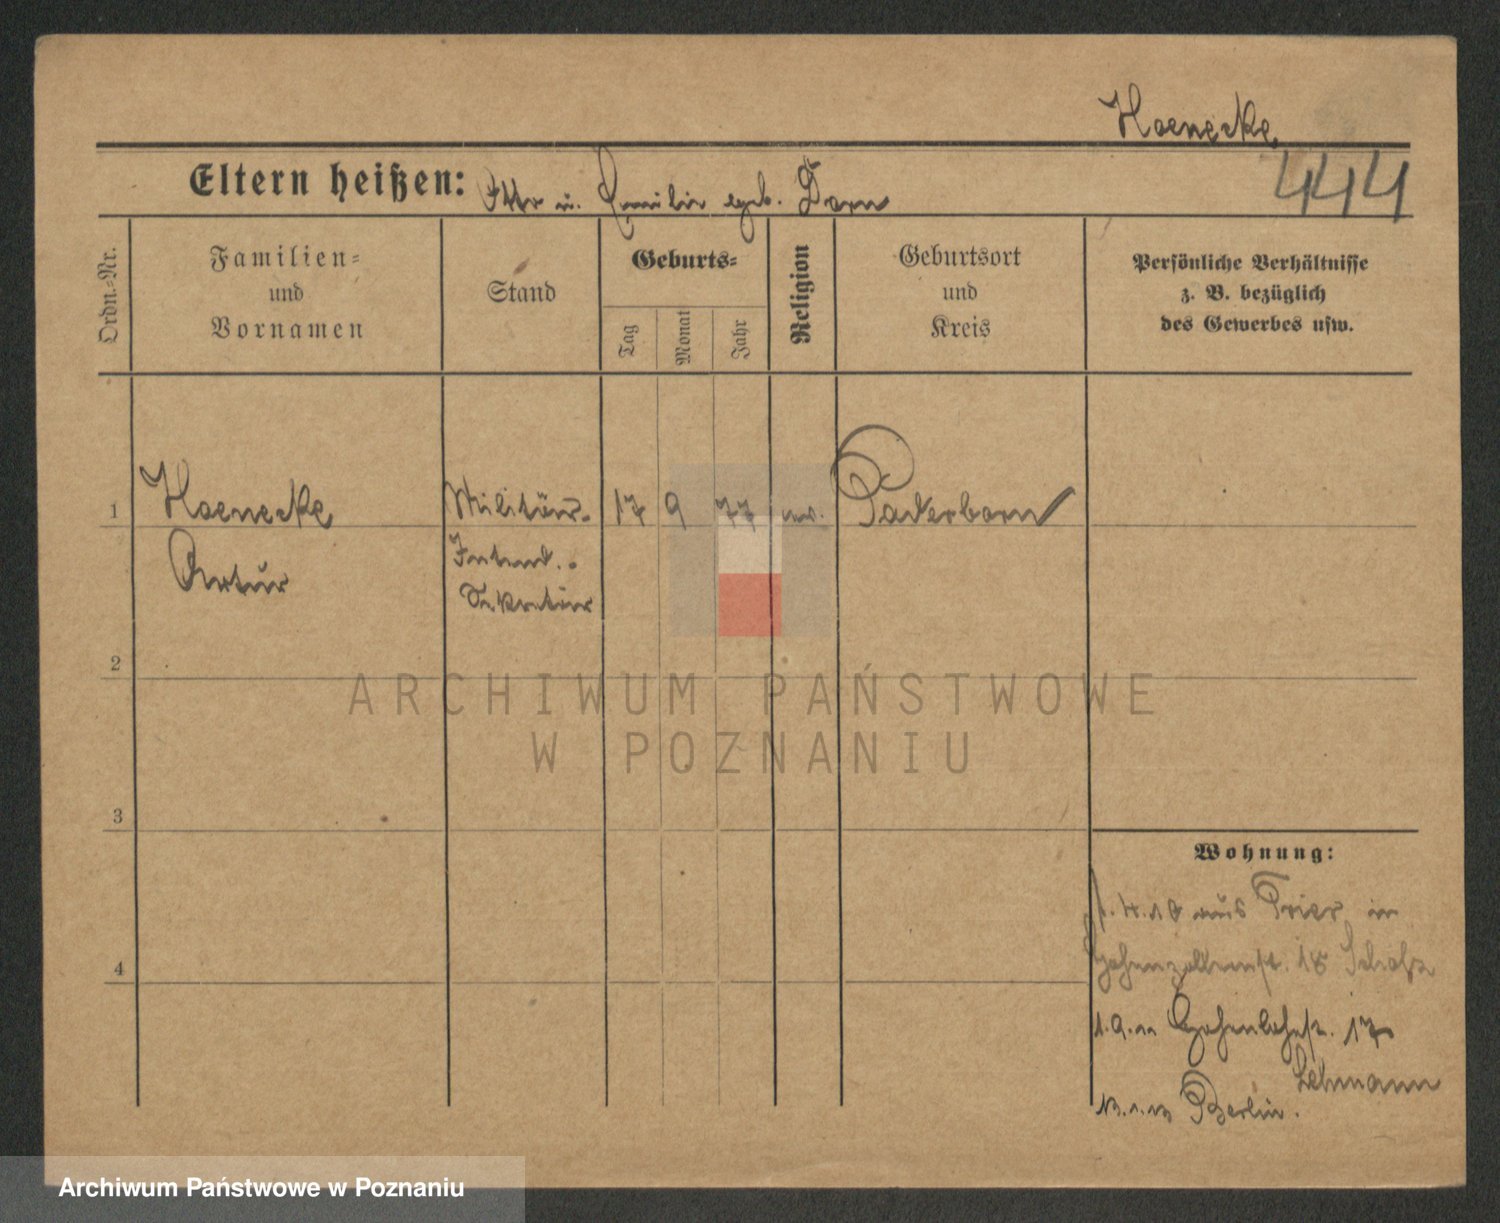 Hoenecke
444
Eltern heißen: Otto u. Emilie geb. Dorn
Ordn.-Nr.
Familien-
und
Vornamen
Stand
Geburts-
Tag
Monat
Jahr
Religion
Geburtsort
und
Kreis
Persönliche Verhältnisse
z. B. bezüglich
des Gewerbes usw.
1
Hoenecke
Artur
Militär-
Intend.-
Sekretär
17 9 77 ev. Paderborn
2
3
4
Wohnung:
1.4.10 aus Trier in
Hohenzollernst. 18
1.9.11 Hohenlohest. 17
Lehmann
Berlin.
ARCHIWUM PAŃSTWOWE
W POZNANIU
Archiwum Państwowe w Poznaniu